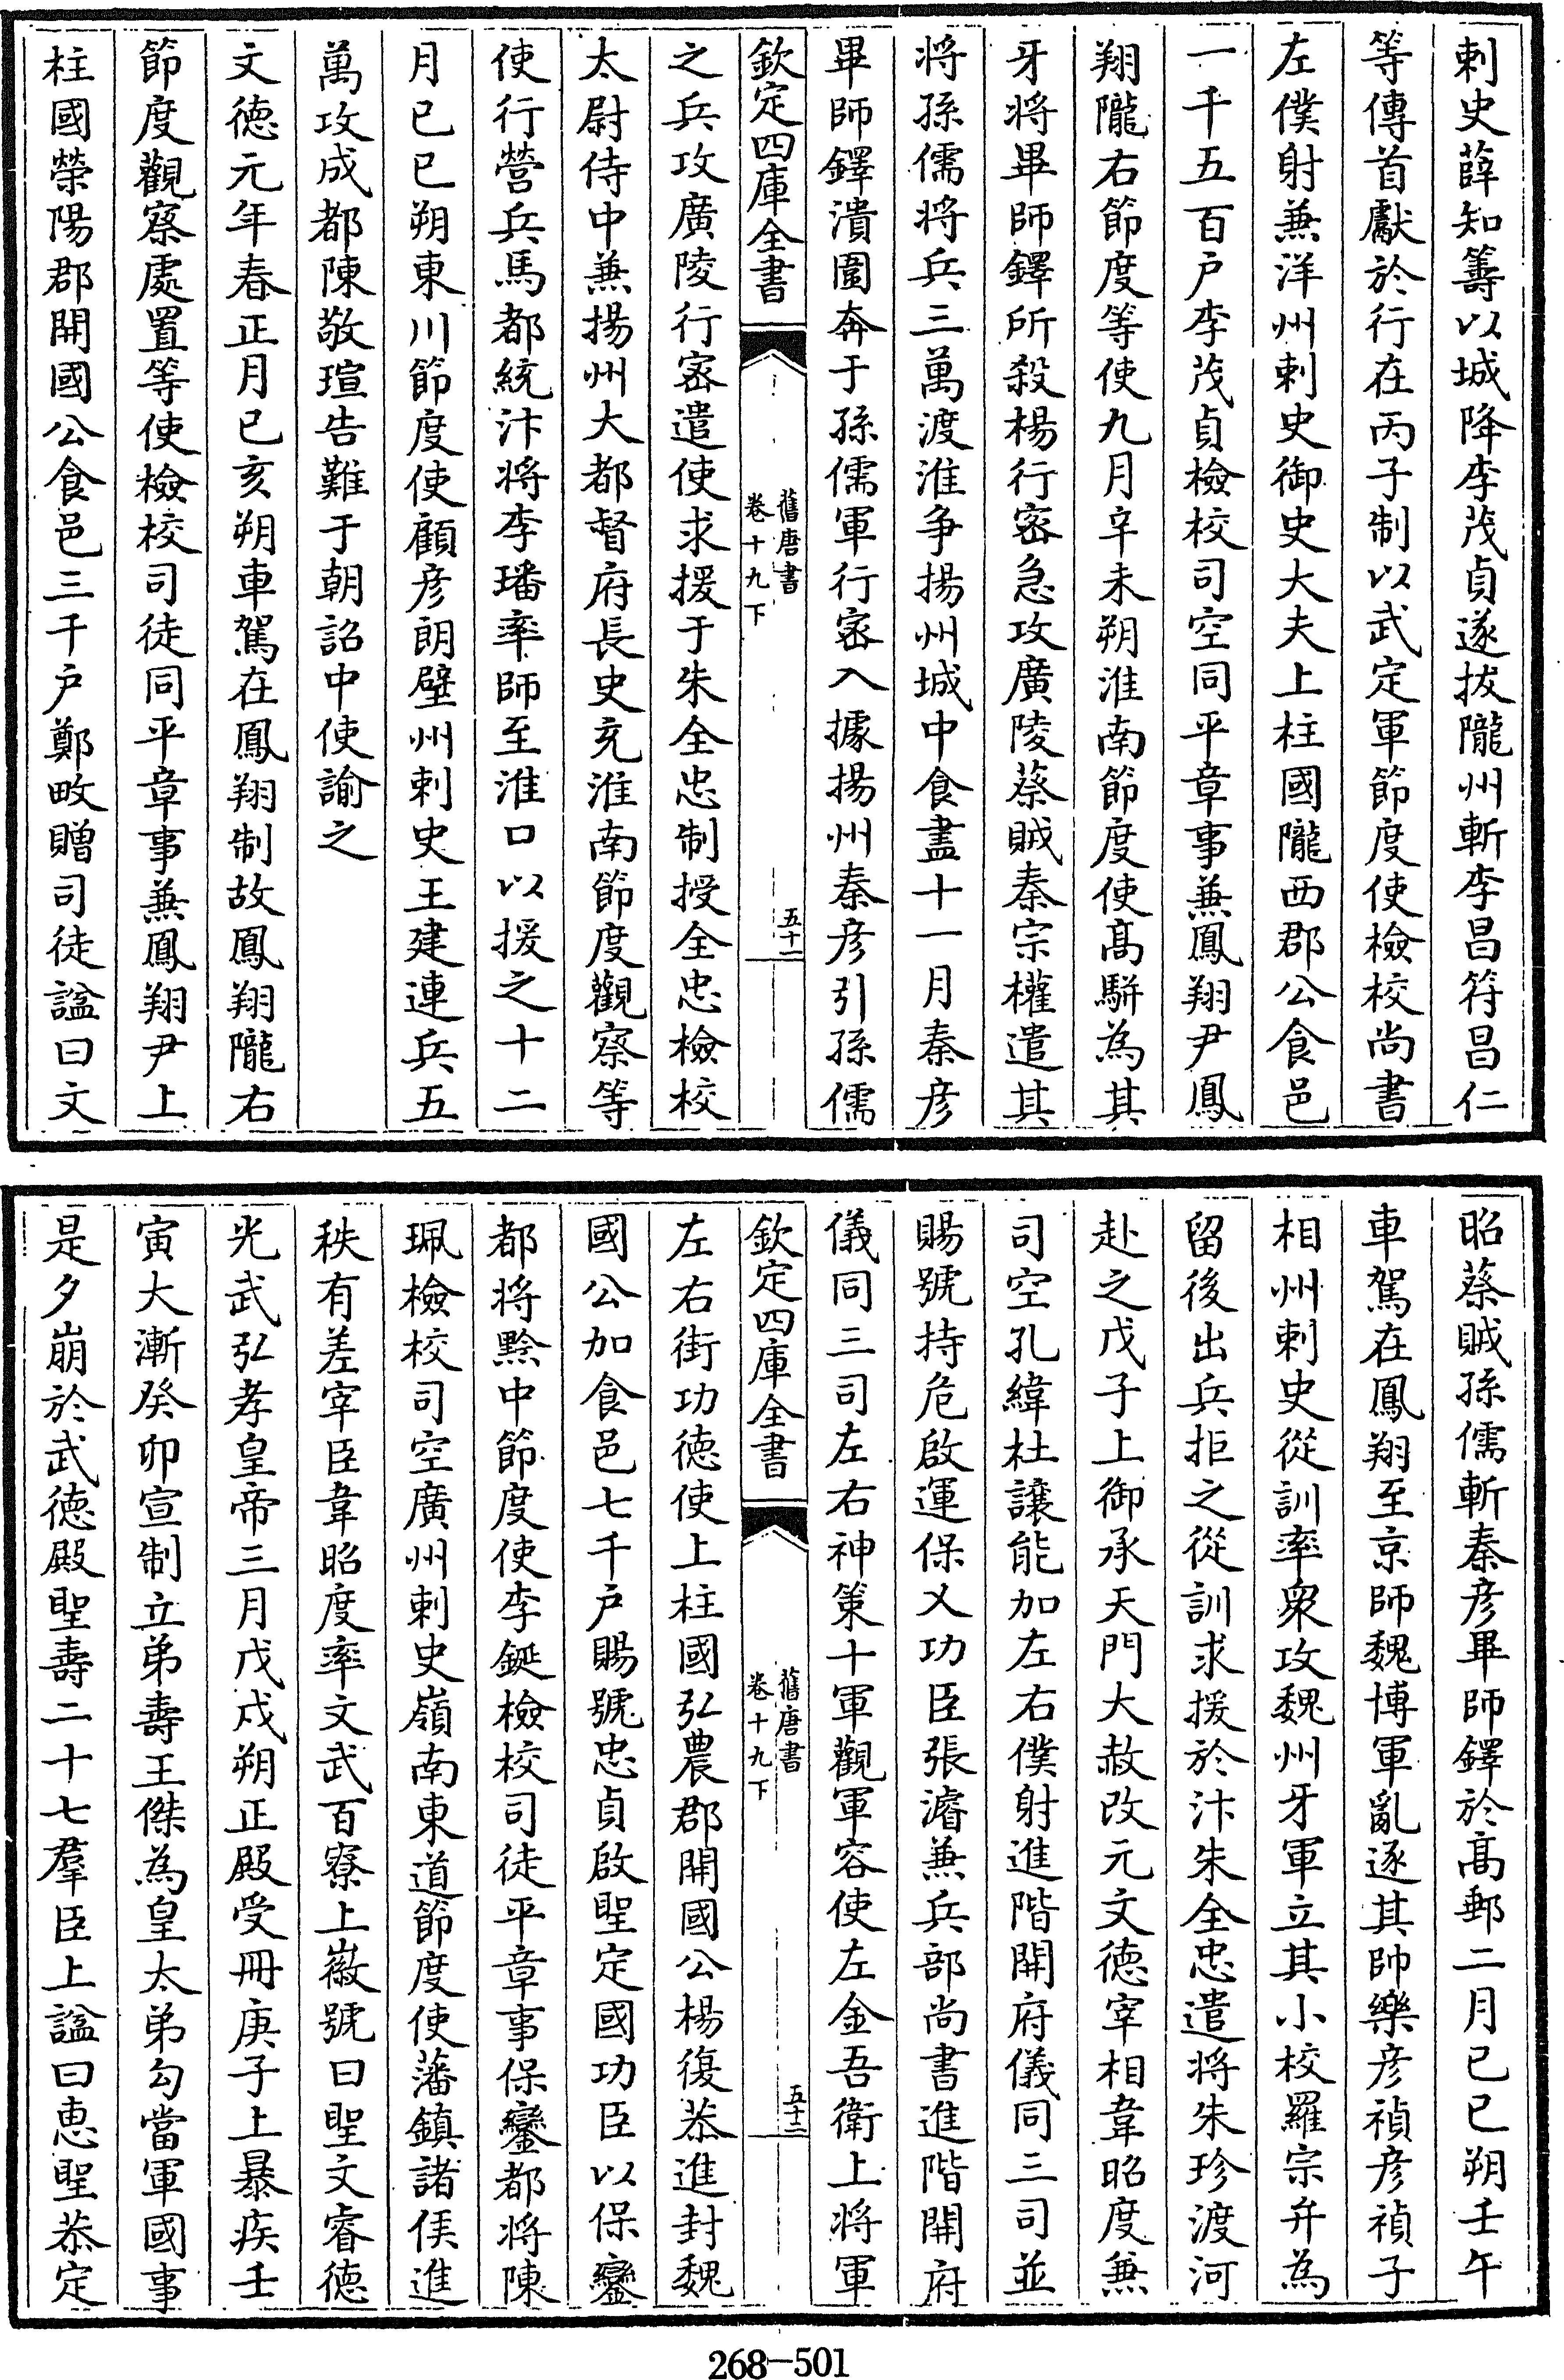 刺史薛知籌以城降李茂貞遂拔隴州斬李昌符昌仁
等傳首獻於行在丙子制以武定軍節度使檢校尚書
左僕射兼洋州刺史御史大夫上柱國隴西郡公食邑
一千五百户李茂貞檢校司空同平章事兼鳳翔尹鳳
翔隴右節度等使九月辛未朔淮南節度使髙駢為其
牙將畢師鐸所殺楊行密急攻廣陵蔡賊秦宗權遣其
將孫儒將兵三萬渡淮爭揚州城中食盡十一月秦彦
畢師鐸潰圍奔于孫儒軍行密入據揚州秦彦引孫儒
欽定四庫全書
舊唐書
卷十九下
五十一
之兵攻廣陵行密遣使求援于朱全忠制授全忠檢校
太尉侍中兼揚州大都督府長史充淮南節度觀察等
使行營兵馬都統汴將李璠率師至淮口以援之十二
月已已朔東川節度使顧彦朗壁州刺史王建連兵五
萬攻成都陳敬瑄告難于朝詔中使諭之
文徳元年春正月已亥朔車駕在鳳翔制故鳳翔隴右
節度觀察處置等使檢校司徒同平章事兼鳳翔尹上
柱國榮陽郡開國公食邑三千户鄭畋贈司徒諡曰文
昭蔡賊孫儒斬秦彦畢師鐸於髙郵二月已已朔壬午
車駕在鳳翔至京師魏博軍亂逐其帥樂彦禎彦禎子
相州刺史從訓率衆攻魏州牙軍立其小校羅宗弁為
留後出兵拒之從訓求援於汴朱全忠遣將朱珍渡河
赴之戊子上御承天門大赦改元文徳宰相韋昭度兼
司空孔緯杜讓能加左右僕射進階開府儀同三司並
賜號持危啟運保乂功臣張濬兼兵部尚書進階開府
儀同三司左右神策十軍觀軍容使左金吾衛上將軍
欽定四庫全書
舊唐書
卷十九下
五十二
左右街功徳使上柱國弘農郡開國公楊復恭進封魏
國公加食邑七千户賜號忠貞啟聖定國功臣以保鑾
都將黔中節度使李鋋檢校司徒平章事保鑾都將陳
珮檢校司空廣州刺史嶺南東道節度使藩鎮諸侯進
秩有差宰臣韋昭度率文武百寮上徽號曰聖文睿徳
光武弘孝皇帝三月戊戌朔正殿受冊庚子上暴疾壬
寅大漸癸卯宣制立弟壽王傑為皇太弟勾當軍國事
是夕崩於武徳殿聖壽二十七羣臣上諡曰惠聖恭定
268-501